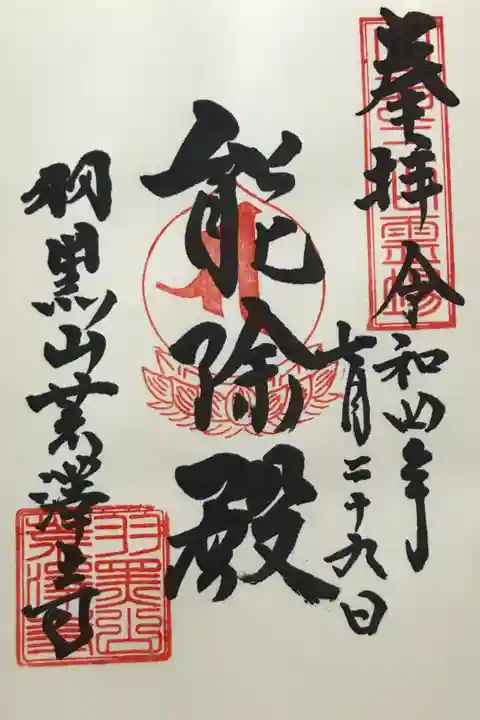 奉拝 令和四年
月二十九日
能除殿
羽黒山荒澤寺
靈場
羽黒山
荒澤寺